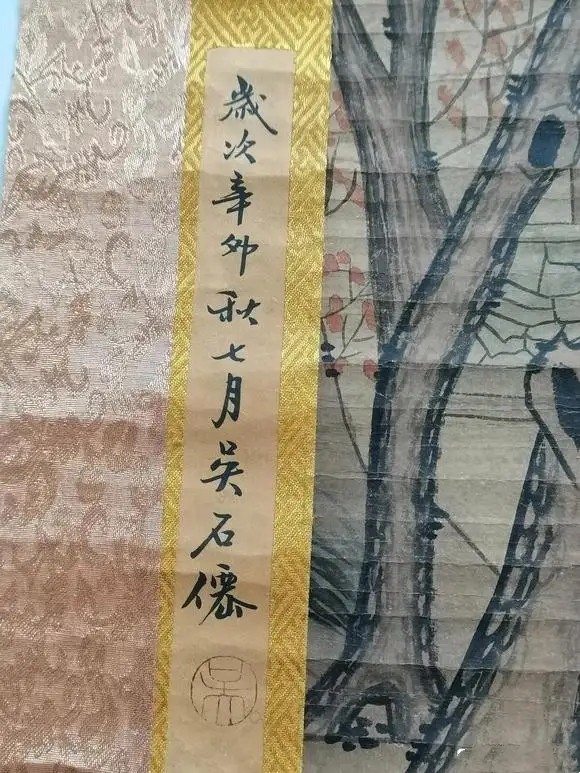 歲次辛卯秋七月吴石僊
吴